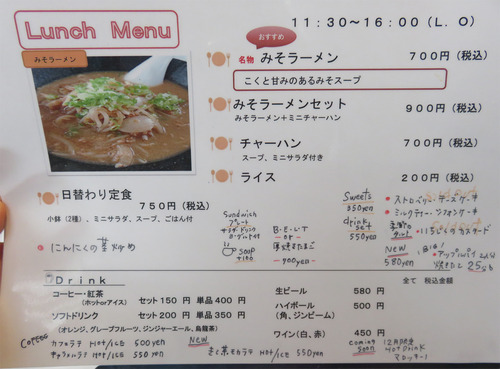 Lunch Menu
11:30~16:00(L.O)
おすすめ
みそラーメン
名物 みそラーメン 700円(税込)
こくと甘みのあるみそスープ
みそラーメンセット 900円(税込)
みそラーメン+ミニチャーハン
チャーハン 700円(税込)
スープ、ミニサラダ付き
ライス 200円(税込)
日替わり定食
750円(税込)
小鉢(2種)、ミニサラダ、スープ、ごはん付
にんにくの茎炒め
Sandwich
プレート
サラダ・ドリンク
ヨーグルト付
soup
+100
B・E・L・T
-or-
厚焼たまご
-900yen-
Sweets
550yen
drink
set
550yen
季節の
タルト
NEW
580yen
ストロベリーチーズケーキ
ミルクティーシフォンケーキ
いちじくのカスタード
アップルパイ
焼きたて 25分
Drink
全て 税込金額
コーヒー・紅茶 セット 150 円 単品 400 円
(ホットorアイス)
ソフトドリンク セット 200 円 単品 350 円
(オレンジ、グレープフルーツ、ジンジャーエール、烏龍茶)
生ビール 580 円
ハイボール 500 円
(角、ジンビーム)
ワイン(白、赤) 450 円
カフェラテ HOT/ICE 500yen
キャラメルラテ HOT/ICE 550yen
NEW
きく芋モカラテ HOT/ICE 550yen
coming
soon
12月予定
Hot Drink
マロッキーノ